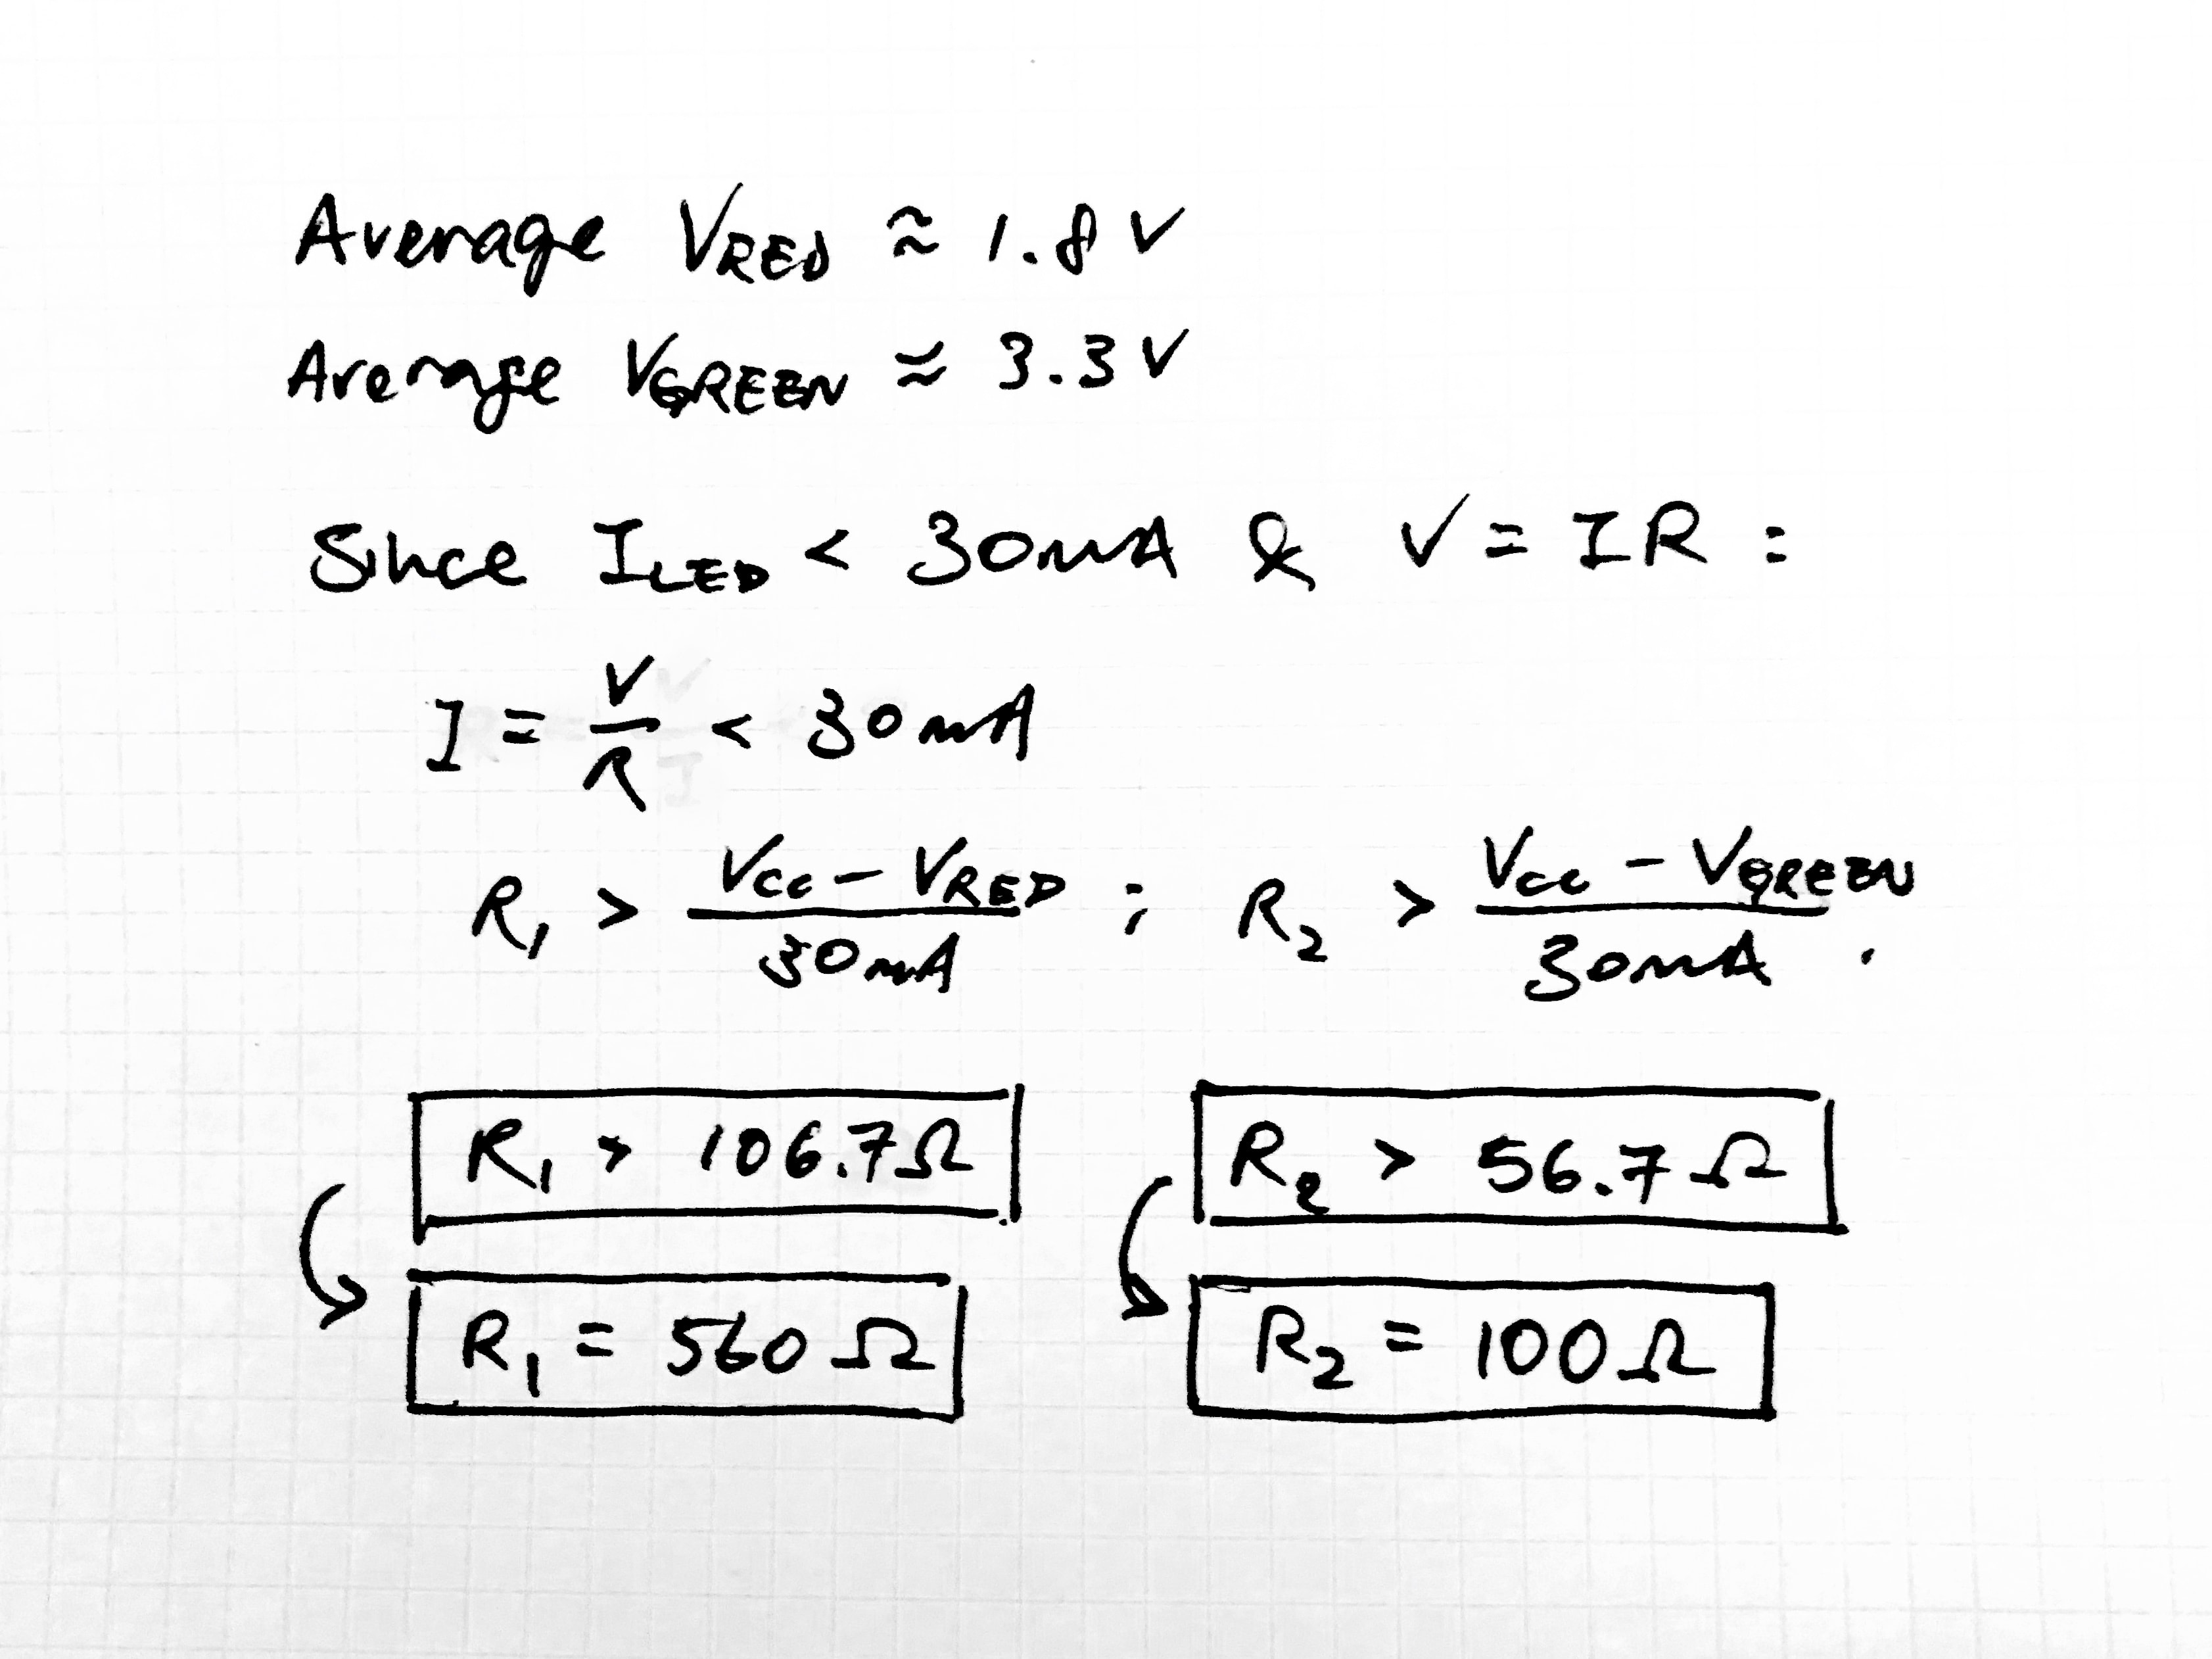 Average V_RED ≈ 1.8 V
Average V_GREEN ≈ 3.3 V
Since I_LED < 30mA & V = IR :
I = V/R < 30mA
R₁ > (Vcc - V_RED)/30mA ; R₂ > (Vcc - V_GREEN)/30mA .
R₁ > 106.7Ω R₂ > 56.7Ω
R₁ = 560Ω R₂ = 100Ω